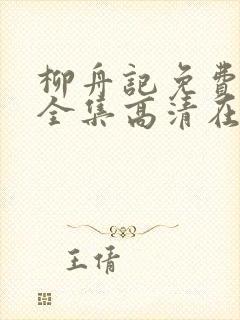 柳舟記免費
全集高清在
王倩